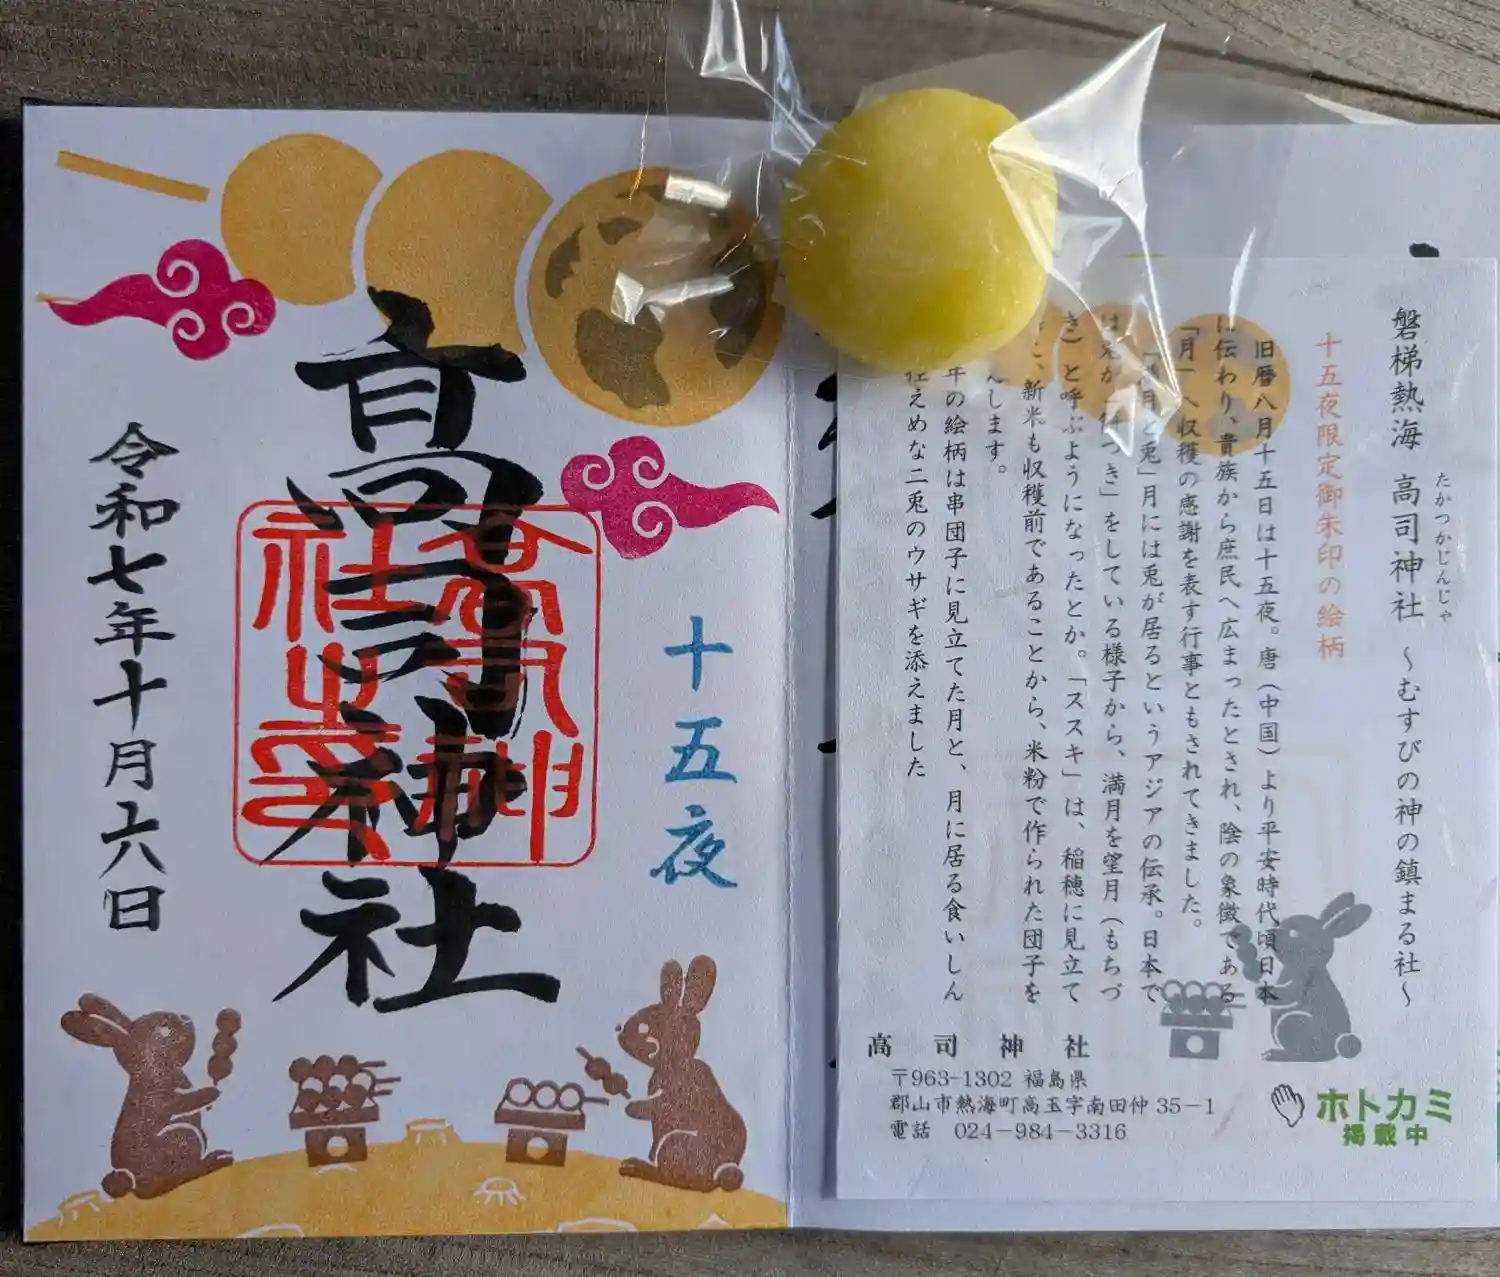 十五夜
高司神社
高司神社之印
令和七年十月六日
磐梯熱海 高司神社 ～むすびの神の鎮まる社～
たかつかじんじゃ
十五夜限定御朱印の絵柄
旧暦八月十五日は十五夜。唐（中国）より平安時代頃日本
に伝わり、貴族から庶民へ広まったとされ、陰の象徴である
「月」へ収穫の感謝を表す行事ともされてきました。
月と兎」月には兎が居るというアジアの伝承。日本で
は兎が つき」をしている様子から、満月を望月（もちづ
き）と呼ぶようになったとか。「ススキ」は、稲穂に見立て
、新米も収穫前であることから、米粉で作られた団子を
んします。
年の絵柄は串団子に見立てた月と、月に居る食いしん
えめな二兎のウサギを添えました
高司神社
〒963-1302 福島県
郡山市熱海町高玉字南田仲35－1
電話 024－984－3316
ホトカミ
掲載中